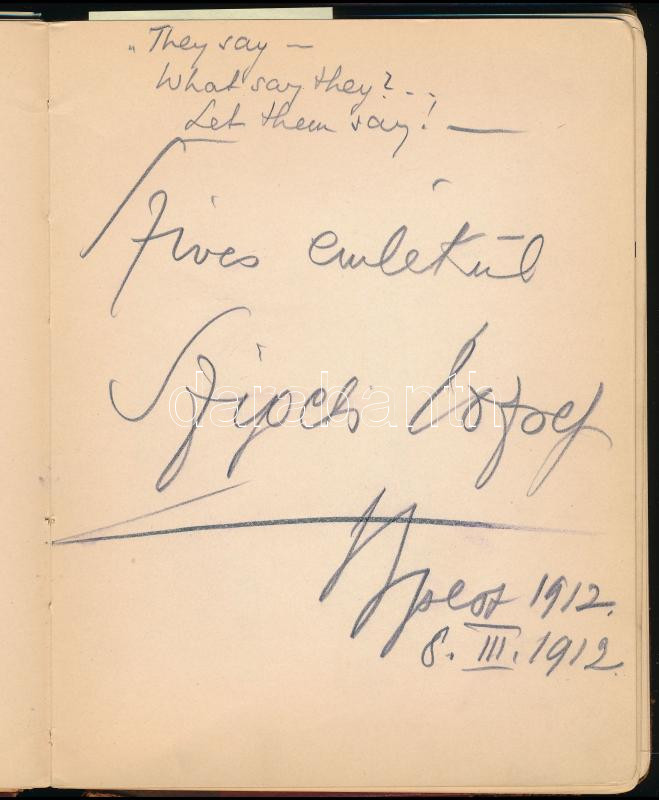 „They say —
What say they?..,
Let them say! —
Szives emlékül
Szigeti József
darabanth
Bpest 1912.
8. III. 1912.